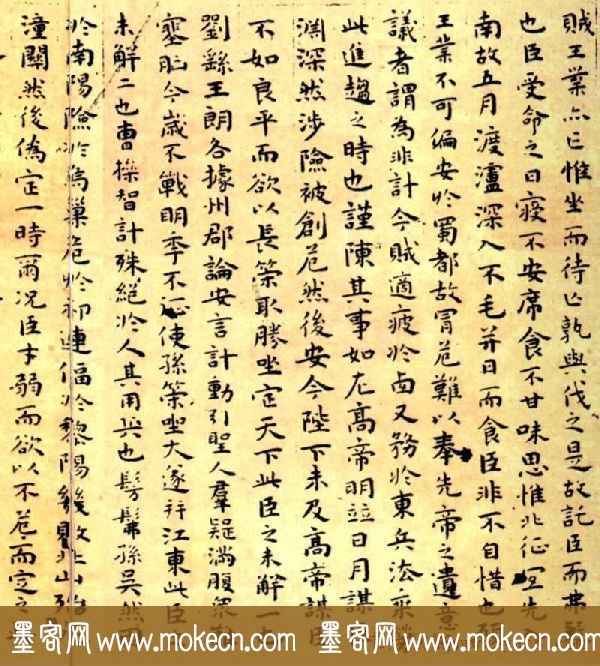 賊王業亦亡惟坐而待亡孰與伐之是故託臣而弗疑
也臣受命之日寢不安席食不甘味思惟北征宜先
南故五月渡瀘深入不毛并日而食臣非不自惜也顧
王業不可偏安於蜀都故冒危難以奉先帝之遺意
議者謂為非計今賊適疲於西又務於東兵法乘勞
此進趨之時也謹陳其事如左高帝明並日月謀臣
淵深然涉險被創危然後安今陛下未及高帝謀臣
不如良平而欲以長策取勝坐定天下此臣之未解一也
劉繇王朗各據州郡論安言計動引聖人羣疑滿腹衆難
塞胸今歲不戰明年不征使孫策坐大遂并江東此臣
未解二也曹操智計殊絕於人其用兵也髣髴孫吳然
於南陽險於烏巢危於祁連偪於黎陽幾敗北山殆
潼關然後偽定一時爾況臣才弱而欲以不危而定之
墨客网 www.mokecn.com 墨客网 www.mokecn.com